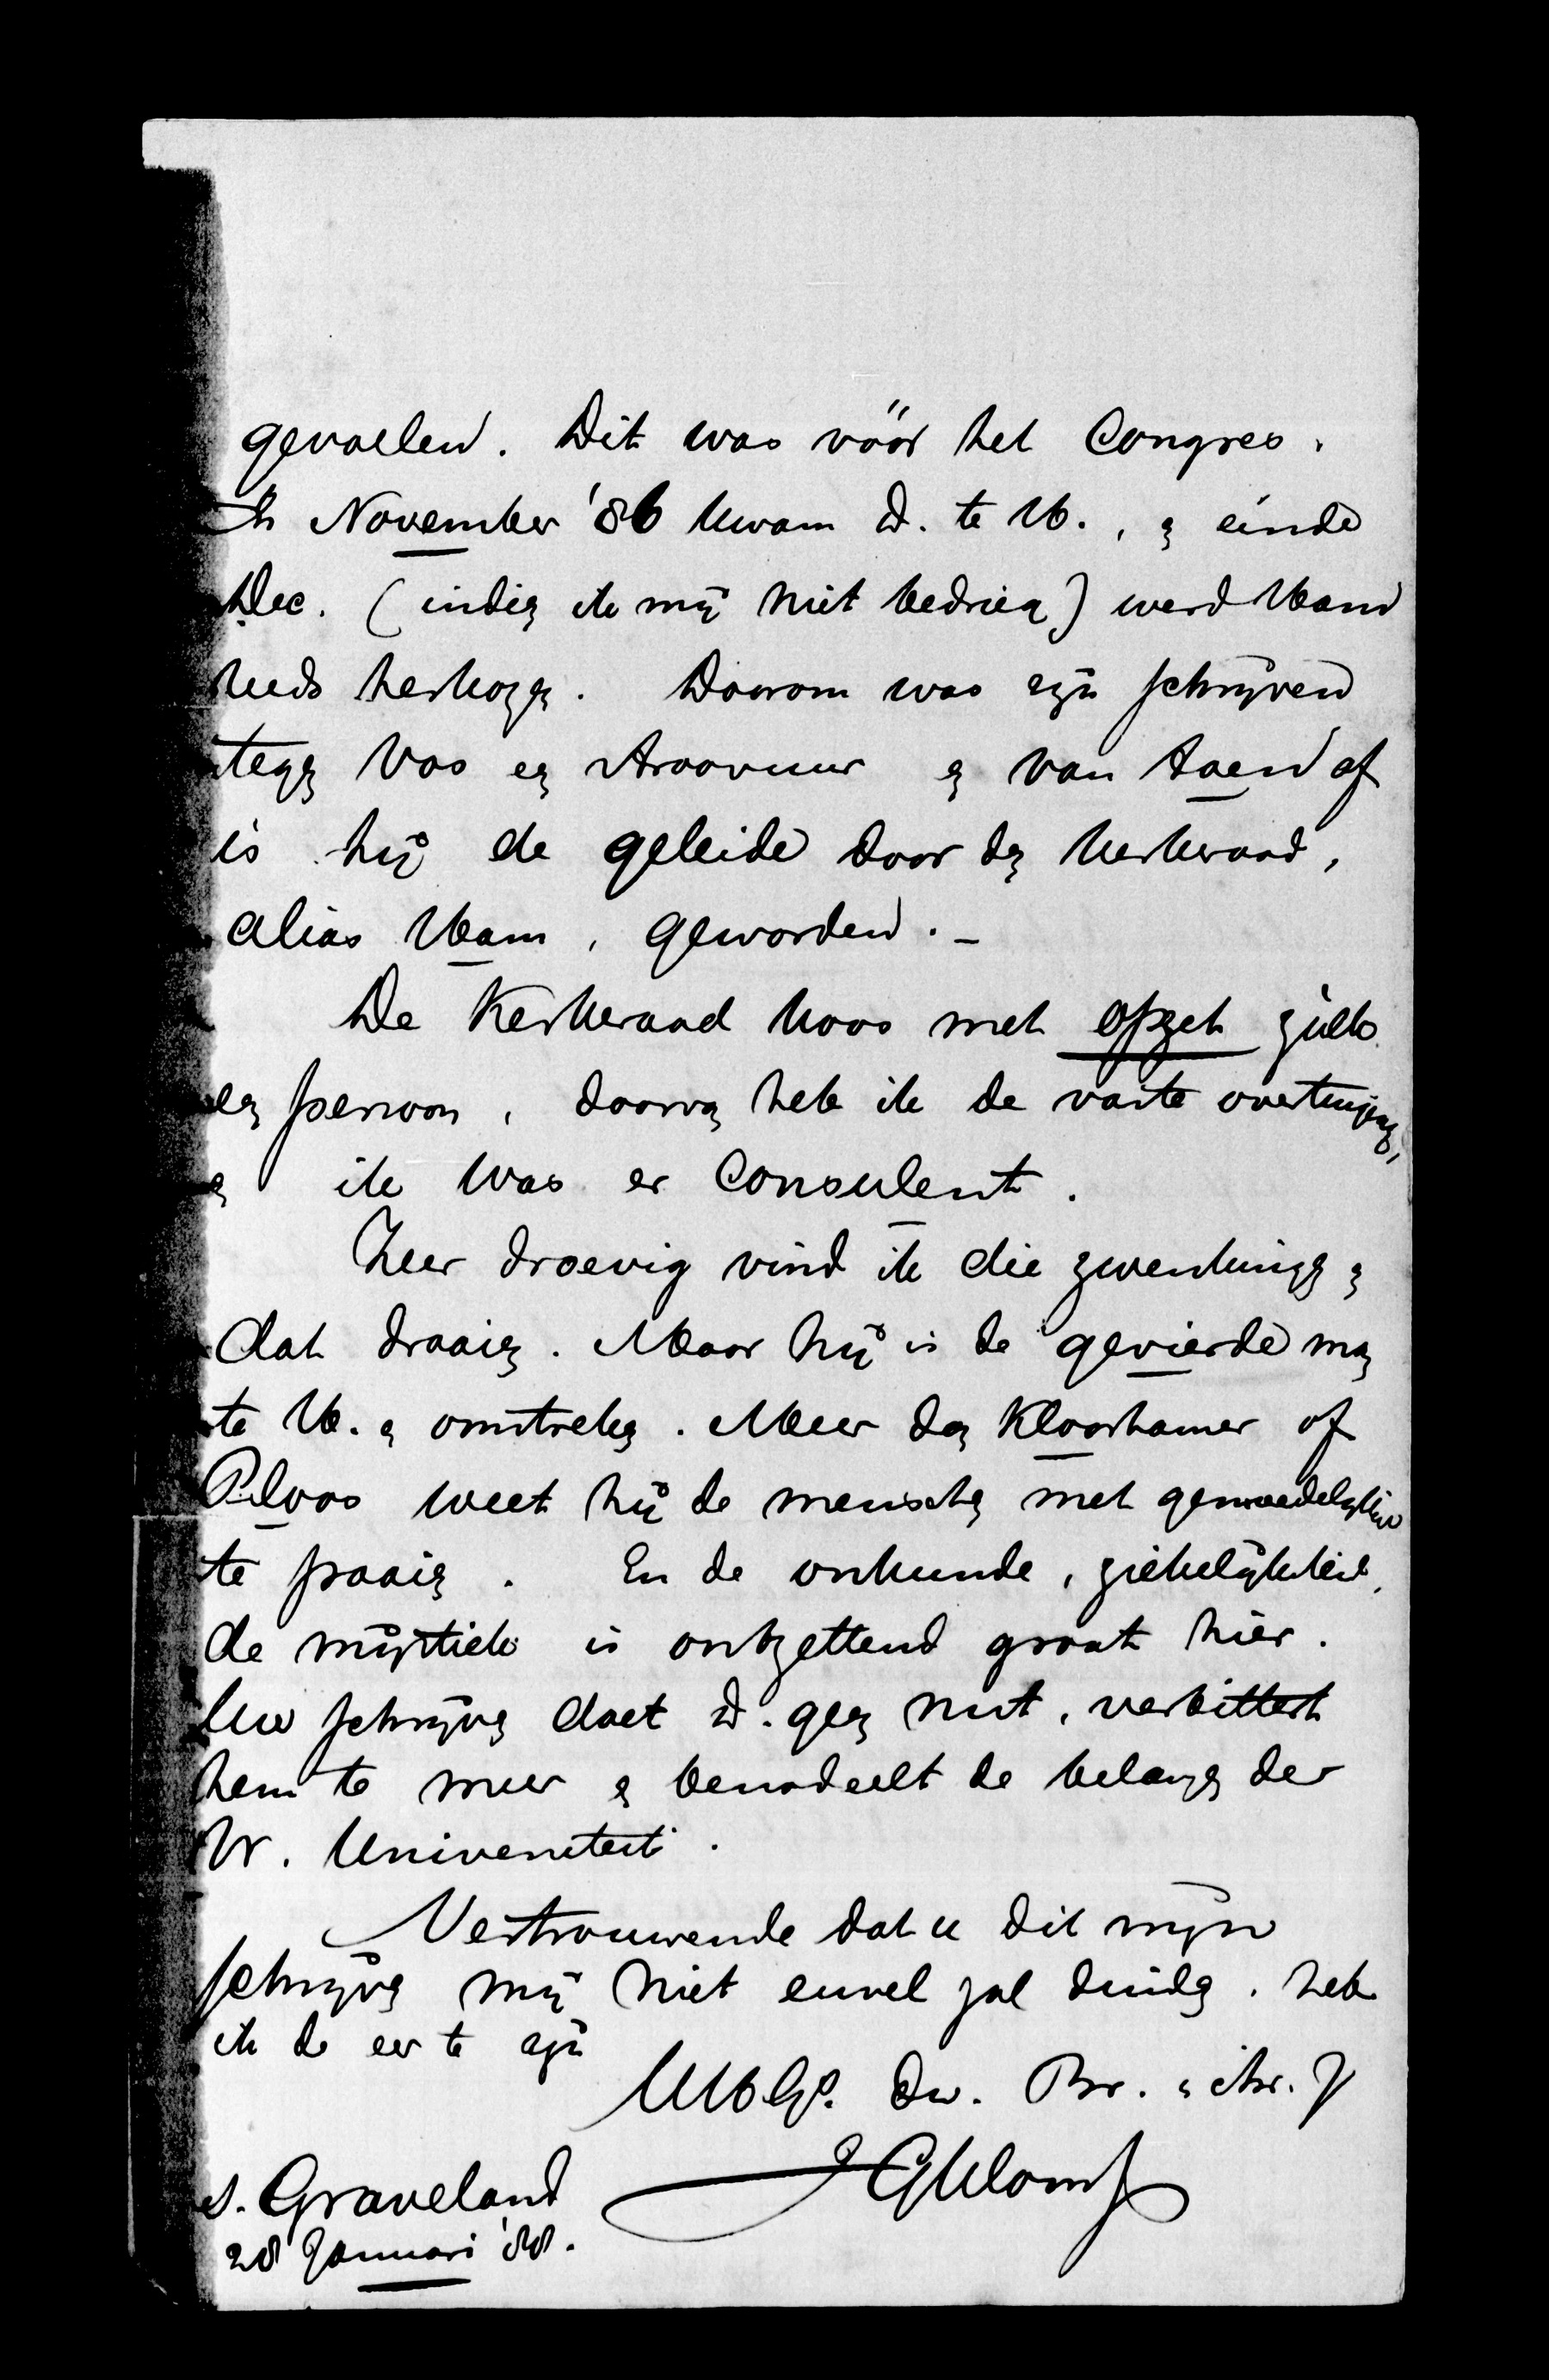 gevoelen. Dit was vóór het Congres.
In November '86 kwam D. te K., en einde
Dec. (indien ik mij niet bedrieg) werd Kam
reeds herkozen. Daarom was zijn schrijven
tegen Vos een stroovuur en van toen af
is hij de geleide door den kerkeraad,
alias Kam, geworden. —
De Kerkeraad koos met opzet zulk
een persoon, daarvan heb ik de vaste overtuiging,
en ik was er Consulent.
Zeer droevig vind ik die zwenkingen en
dat draaien. Maar hij is de gevierde man
te K. en omstreken. Meer dan Kloorhamer of
Ploos weet hij de menschen met gemoedelijkheid
te paaien. En de onkunde, ziekelijkheid,
de mystiek is ontzettend groot hier.
Uw schrijven doet D. geen nut, verbittert
hem te meer en benadeelt de belangen der
Vr. Universiteit.
Vertrouwende dat u dit mijn
schrijven mij niet euvel zal duiden, heb
ik de eer te zijn
dw. Br. en
s. Graveland
28 Januari '88.